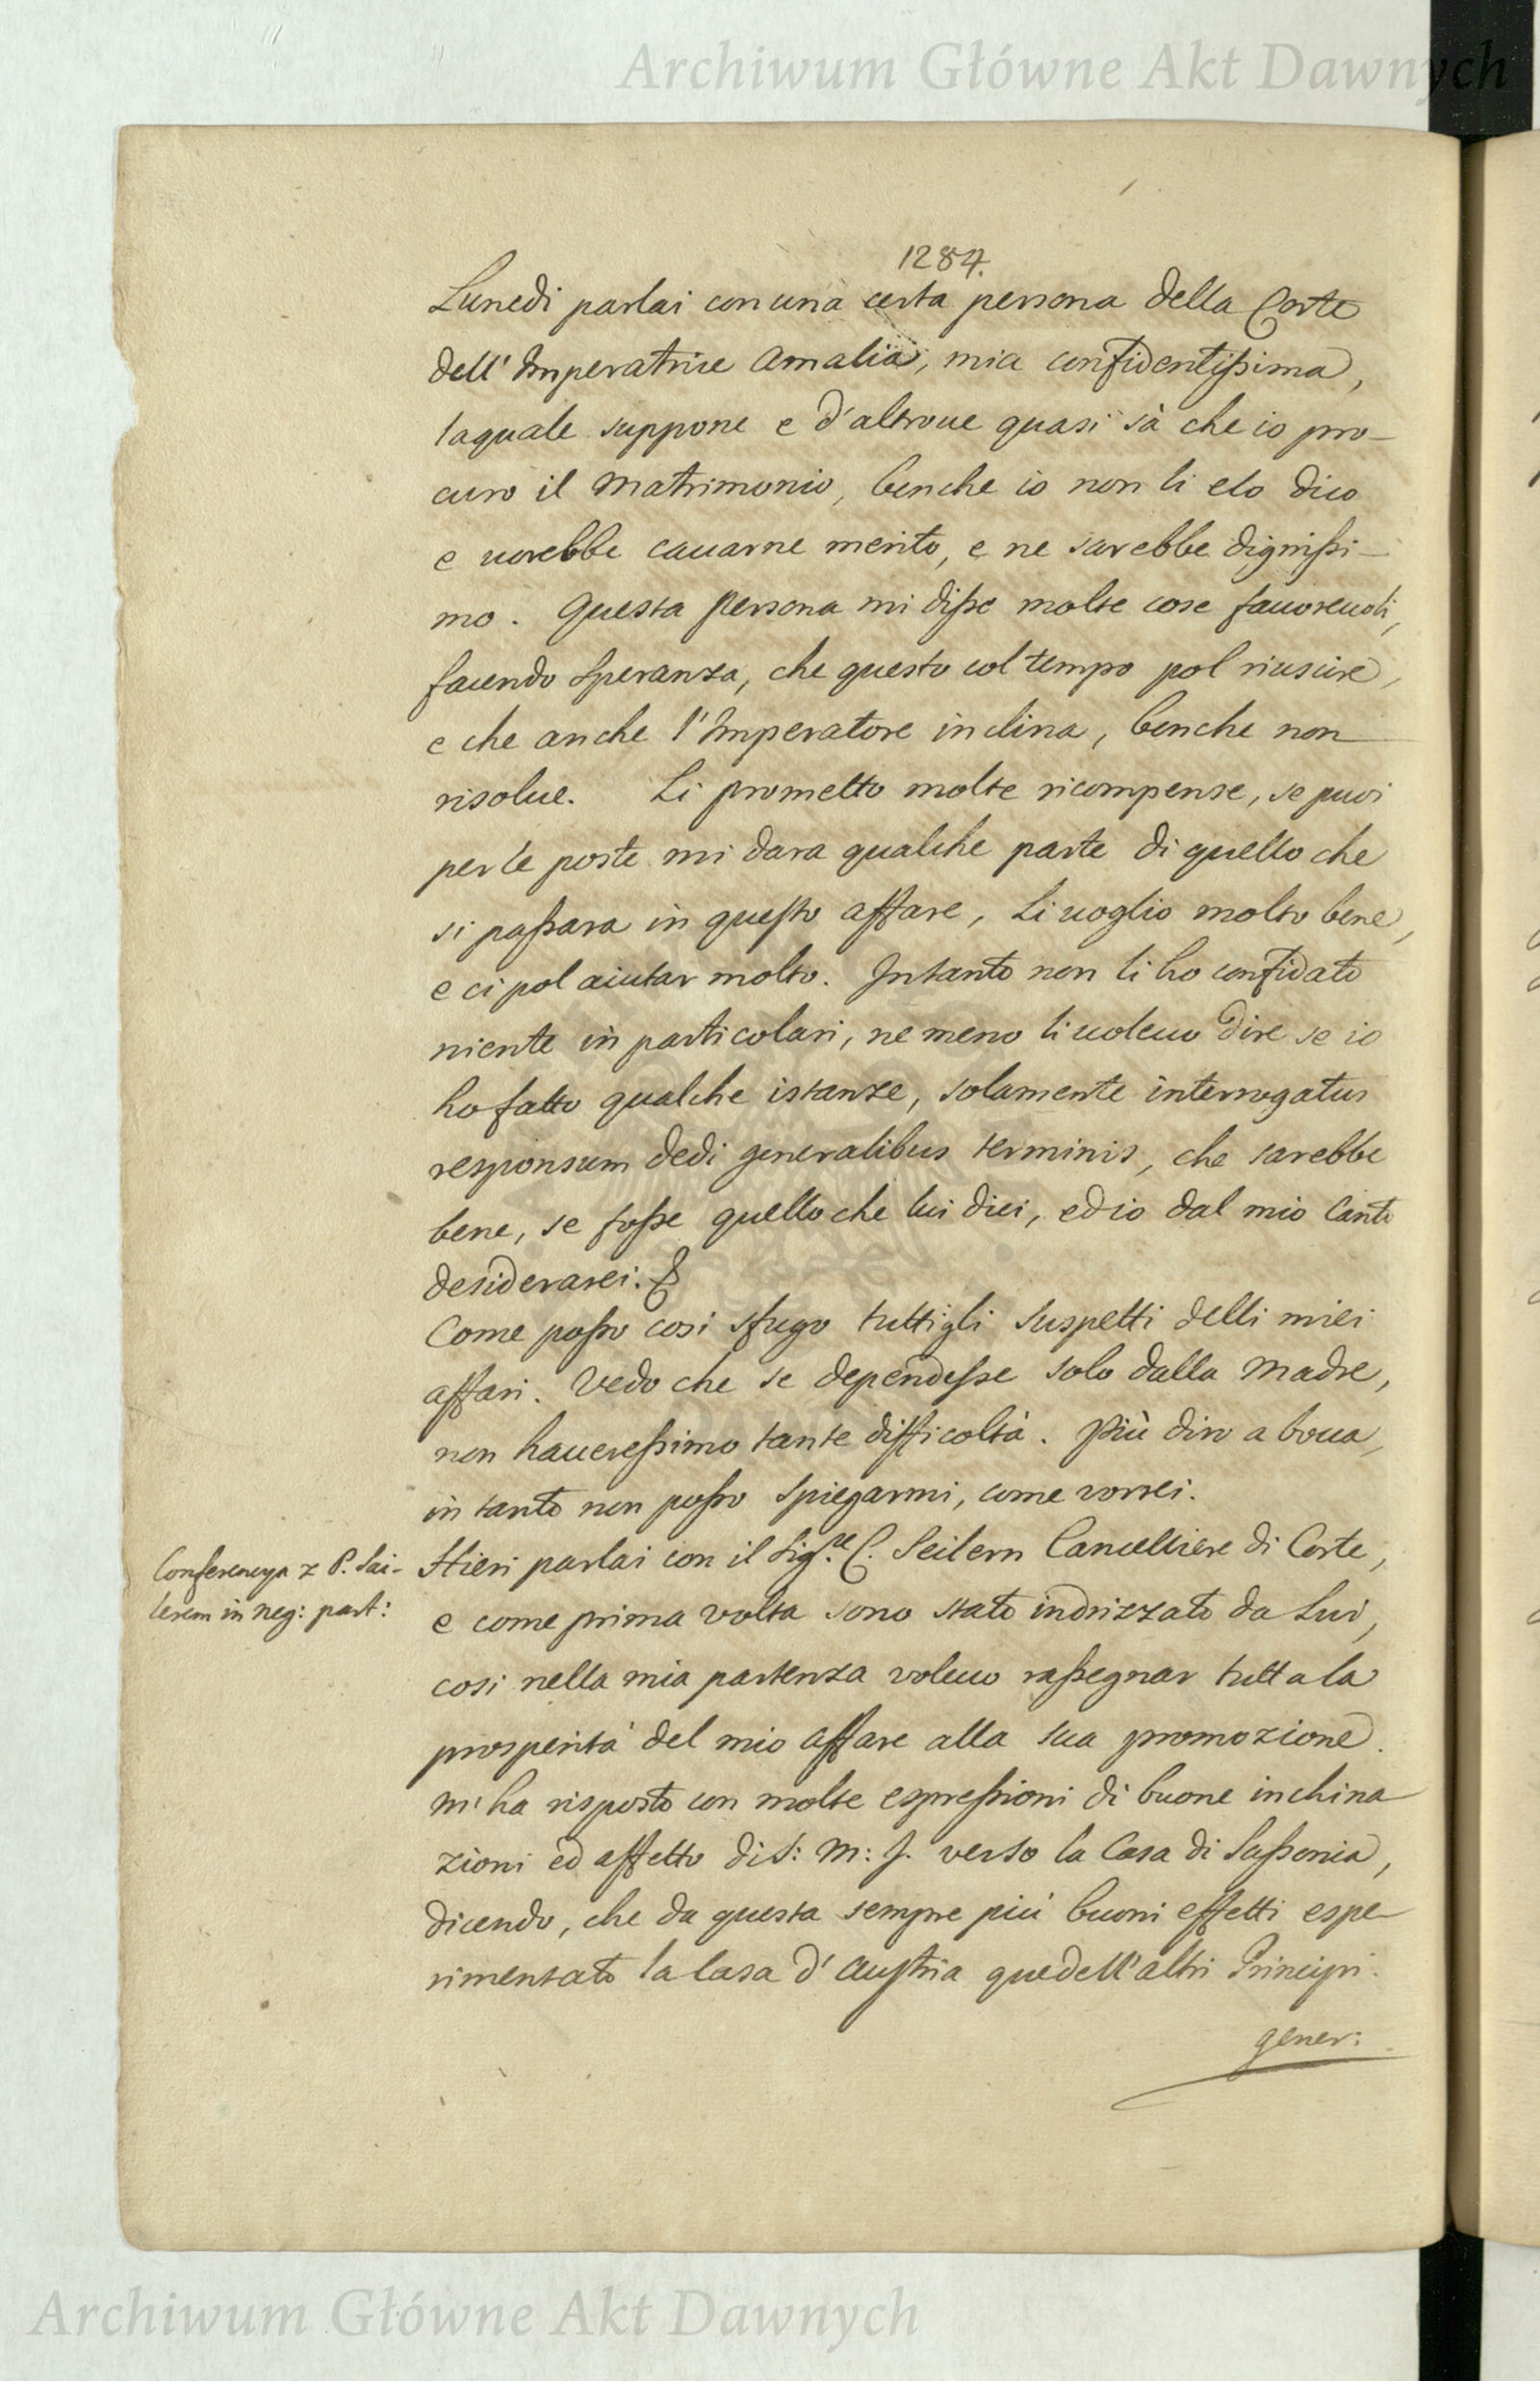 Archiwum Główne Akt Dawnych
1284.
Lunedi parlai con una certa persona della Corte
dell' Imperatrice Amalia, mia confidentissima,
laquale suppone e d'altroue quasi sà che io pro-
curo il Matrimonio, benche io non li elo dico
e uorebbe cauarne merito, e ne sarebbe dignissi-
mo. Questa persona mi disse molte cose fauoreuoli,
facendo speranza, che questo col tempo pol riuscire,
e che anche l'Imperatore inclina, benche non
risolue. Li prometto molte ricompense, se puoi
per le poste mi dara qualche parte di quello che
si passara in questo affare, Li uoglio molto bene,
e ci pol aiutar molto. Intanto non li ho confidato
niente in particolari, ne meno li uoleuo dire se io
ho fatto qualche istanze, solamente interrogatus
responsum dedi generalibus terminis, che sarebbe
bene, se fosse quello che lui dici, ed io dal mio canto
desiderarei.
Come posso cosi sfugo tutti gli suspetti delli miei
affari. Vedo che se dependesse solo dalla Madre,
non haueressimo tante difficoltà. Più diro a boua,
in tanto non posso spiegarmi, come vorrei.
Conferencya z P. Sai-
lerem in neg: part:
Hieri parlai con il Sig.re C. Seilern Cancelliere di Corte,
e come prima volta sono stato indrizzato da Lui,
cosi nella mia partenza voleuo rassegnar tutta la
prosperità del mio affare alla sua promozione.
M'ha risposto con molte espressioni di buone inchina
zioni ed affetto di S: M: J. verso la Casa di Sassonia,
dicendo, che da questa sempre più buoni effetti espe-
rimentato la Casa d'Austria que dell'altri Principi.
gener:
Archiwum Główne Akt Dawnych